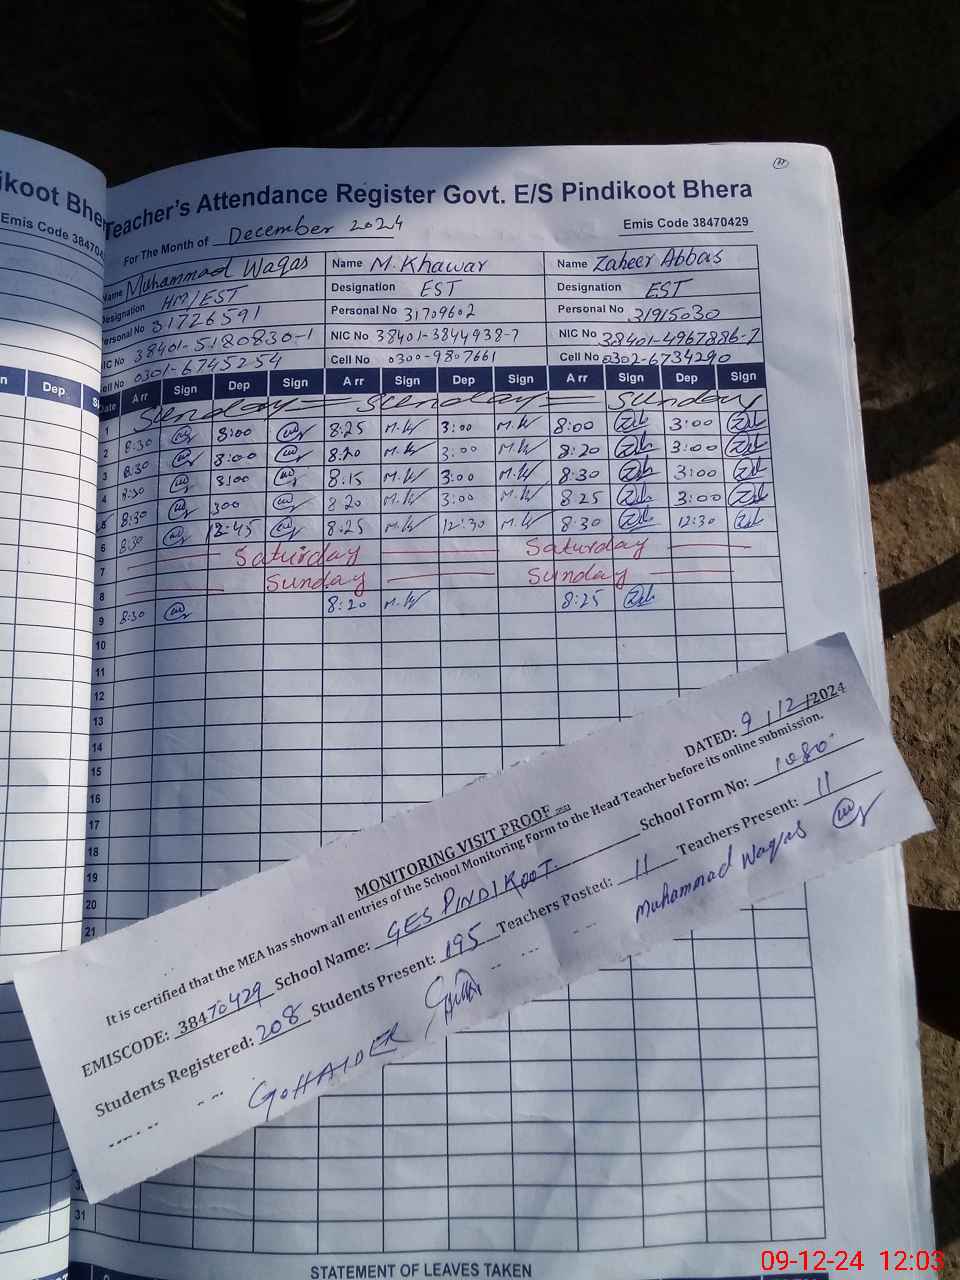 ikoot Bhe
Emis Code 38470
Teacher's Attendance Register Govt. E/S Pindikoot Bhera
For The Month of December 2024 Emis Code 38470429
Name Muhammad Waqas Name M. Khawar Name Zaheer Abbas
Designation HM/EST Designation EST Designation EST
Personal No 31726591 Personal No 31709602 Personal No 31915030
NIC No 38401-5180830-1 NIC No 38401-3844938-7 NIC No 38401-4967886-7
Cell No 0301-6745254 Cell No 0300-9807661 Cell No 0302-6734290
Dep
Date Arr Sign Dep Sign Arr Sign Dep Sign Arr Sign Dep Sign
1 Sunday Sunday Sunday
2 8:30 3:00 8:25 M.W 3:00 M.W 8:00 3:00
3 8:30 3:00 8:20 M.W 3:00 M.W 8:20 3:00
4 8:30 3:00 8:15 M.W 3:00 M.W 8:30 3:00
5 8:30 300 8 20 M.W 3:00 M.W 8 25 3:00
6 8:30 12:45 8:25 M.W 12:30 M.W 8:30 12:30
7 Saturday Saturday
8 Sunday Sunday
9 8:30 8:20 M.W 8:25
10
11
12
13
14
15
16
17
18
19
20
21
MONITORING VISIT PROOF DATED: 9/12/2024
It is certified that the MEA has shown all entries of the School Monitoring Form to the Head Teacher before its online submission.
EMISCODE: 38470429 School Name: GES PINDIKOOT School Form No: 1080
Students Registered: 208 Students Present: 195 Teachers Posted: 11 Teachers Present: 11
G. HAIDER Muhammad Waqas
31
STATEMENT OF LEAVES TAKEN
09-12-24 12:03